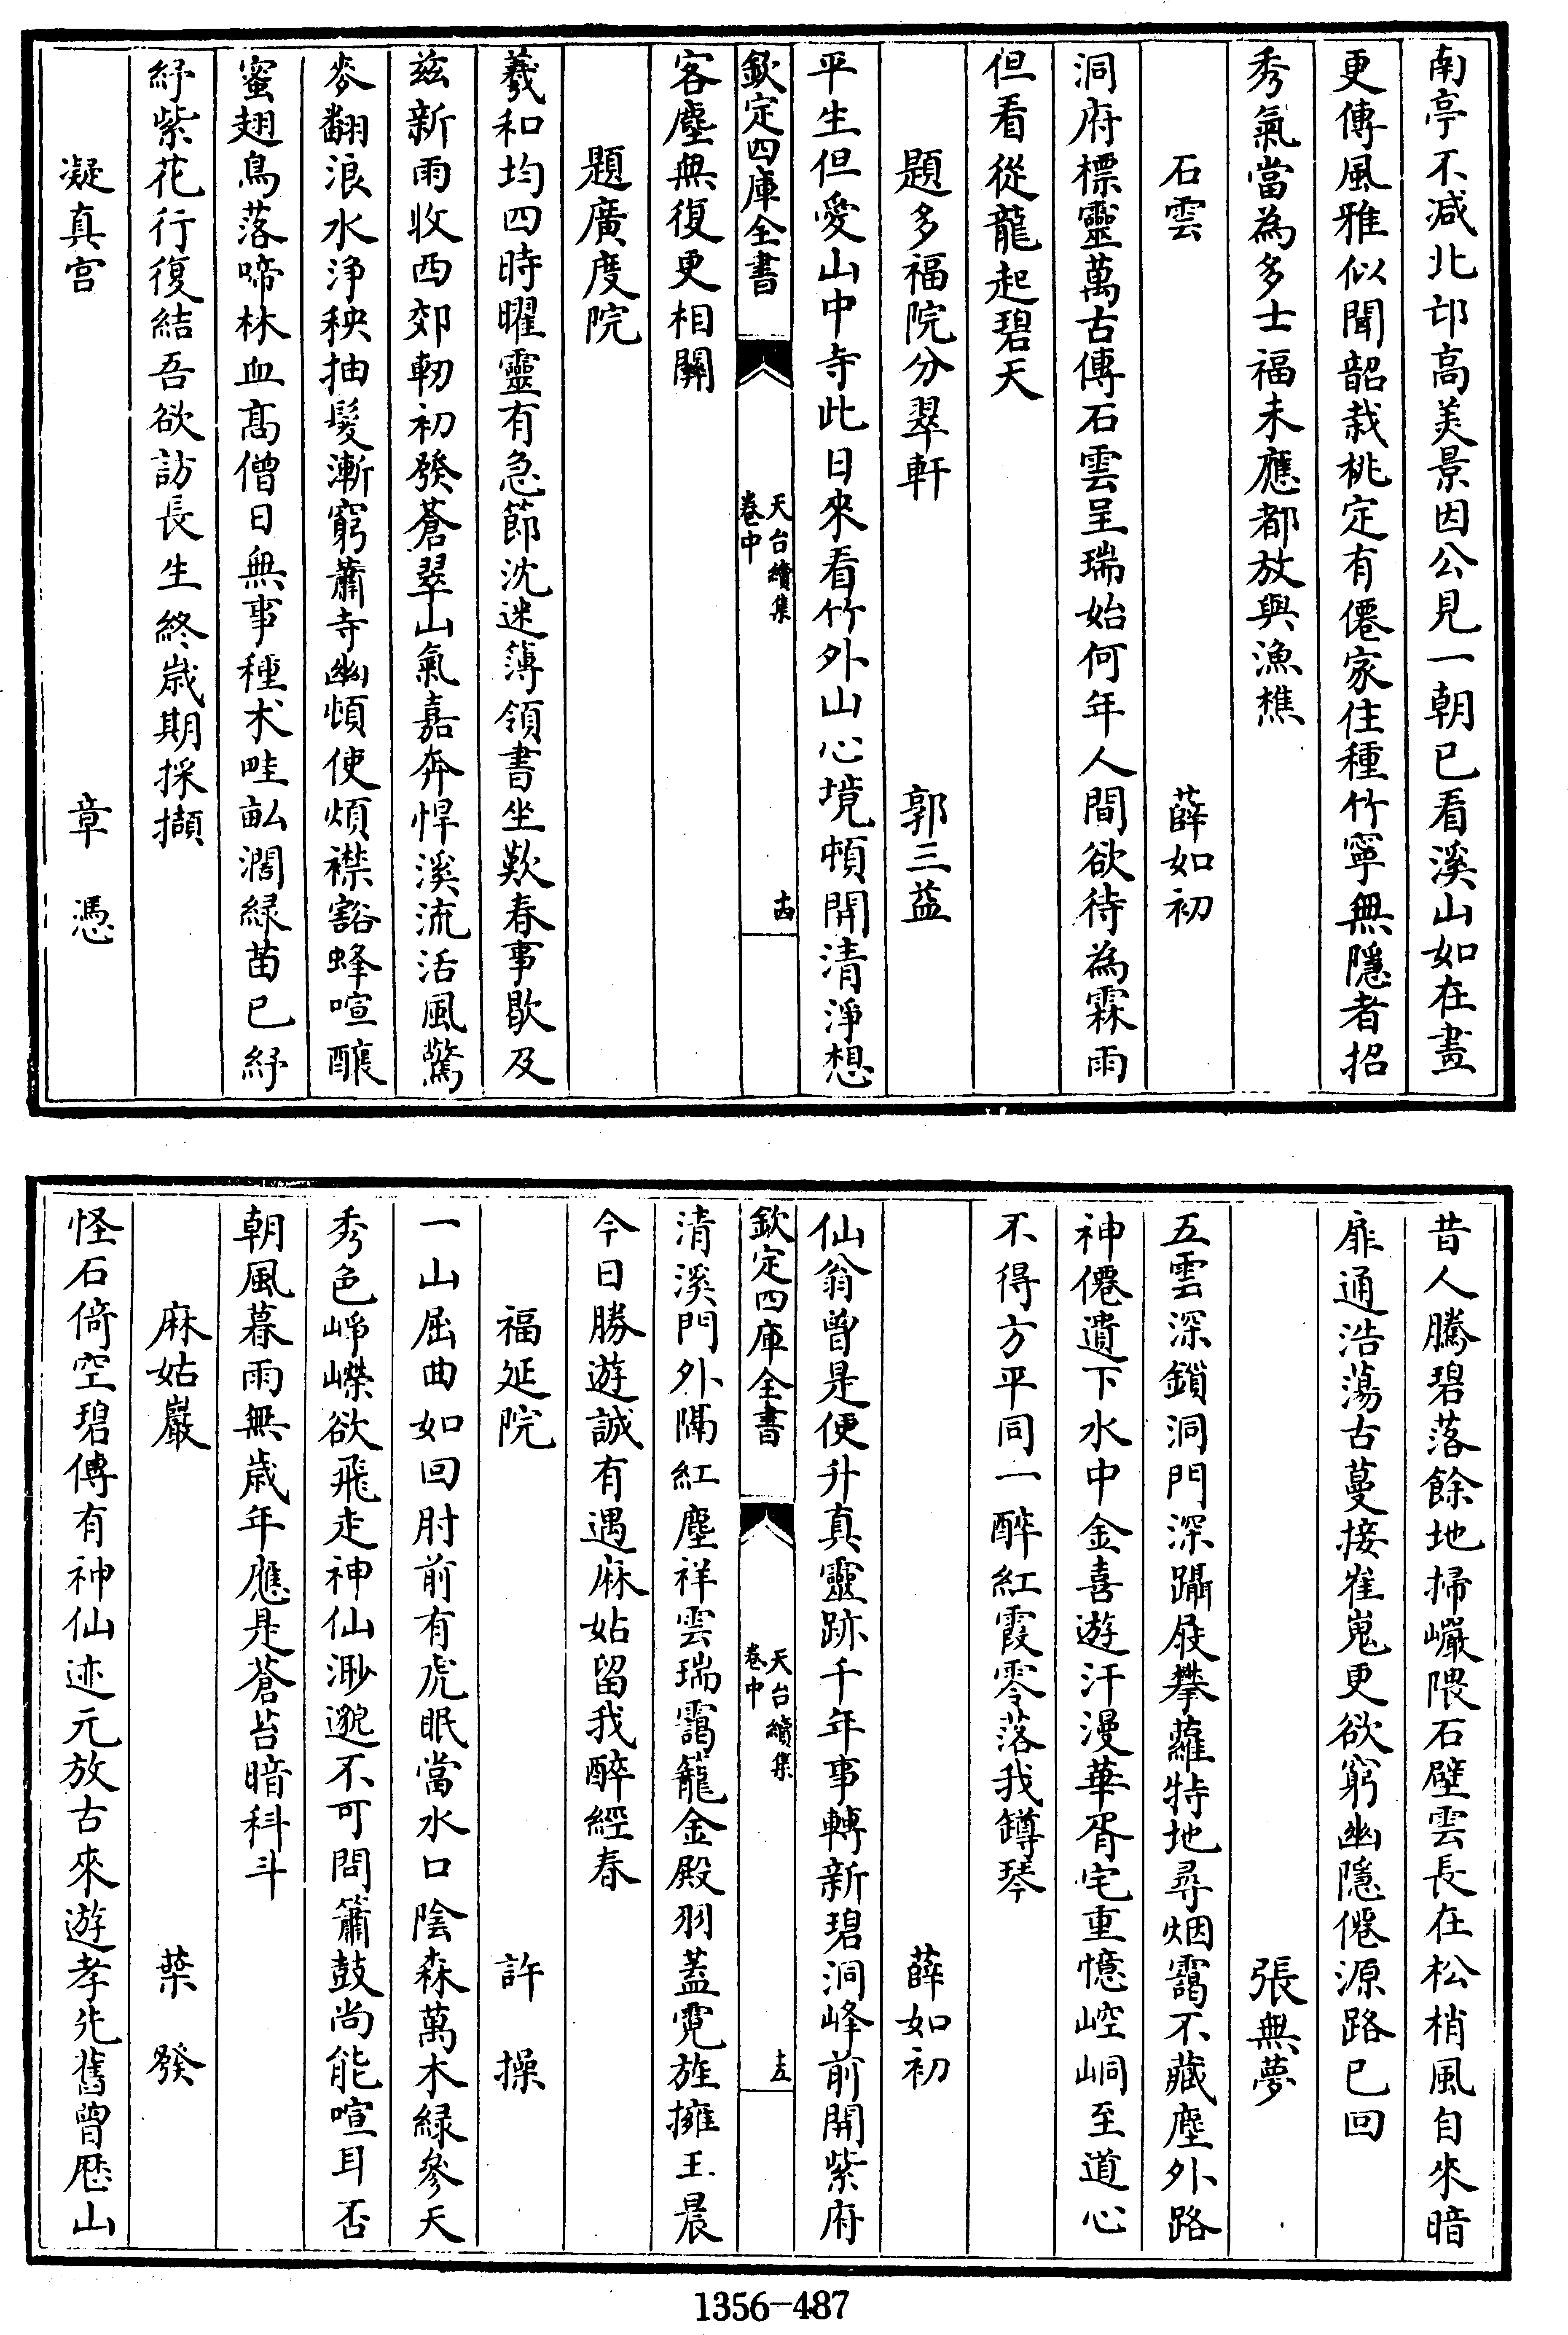 南亭不减北邙高美景因公見一朝已看溪山如在畫
更傳風雅似聞韶栽桃定有僊家住種竹寧無隱者招
秀氣當為多士福未應都放與漁樵
石雲 薛如初
洞府標靈萬古傳石雲呈瑞始何年人間欲待為霖雨
但看從龍起碧天
題多福院分翠軒 郭三益
平生但愛山中寺此日來看竹外山心境頓開清淨想
欽定四庫全書 天台續集卷中 十四
客塵無復更相關
題廣度院
羲和均四時曜靈有急節沈迷簿領書坐歎春事歇及
兹新雨收西郊軔初發蒼翠山氣嘉奔悍溪流活風驚
麥翻浪水浄秧抽髮漸窮蕭寺幽頓使煩襟豁蜂喧釀
蜜翅鳥落啼林血髙僧日無事種术畦畝濶緑苗已紓
紓紫花行復結吾欲訪長生終歳期採擷
凝真宫 章憑
昔人騰碧落餘地掃巗隈石壁雲長在松梢風自來暗
扉通浩蕩古蔓接崔嵬更欲窮幽隱僊源路已回
張無夢
五雲深鎖洞門深躡屐攀蘿特地尋烟靄不藏塵外路
神僊遺下水中金喜遊汗漫華胥宅重憶崆峒至道心
不得方平同一醉紅霞零落我鐏琴
薛如初
仙翁曾是便升真靈跡千年事轉新碧洞峰前開紫府
欽定四庫全書 天台續集卷中 十五
清溪門外隔紅塵祥雲瑞靄籠金殿羽葢霓旌擁王晨
今日勝遊誠有遇麻姑留我醉經春
福延院 許操
一山屈曲如回肘前有虎眠當水口陰森萬木緑參天
秀色崢嶸欲飛走神仙渺邈不可問簫鼓尚能喧耳否
朝風暮雨無歳年應是蒼苔暗科斗
麻姑巖 葉發
怪石倚空碧傳有神仙迹元放古來遊孝先舊曾歴山
1356-487